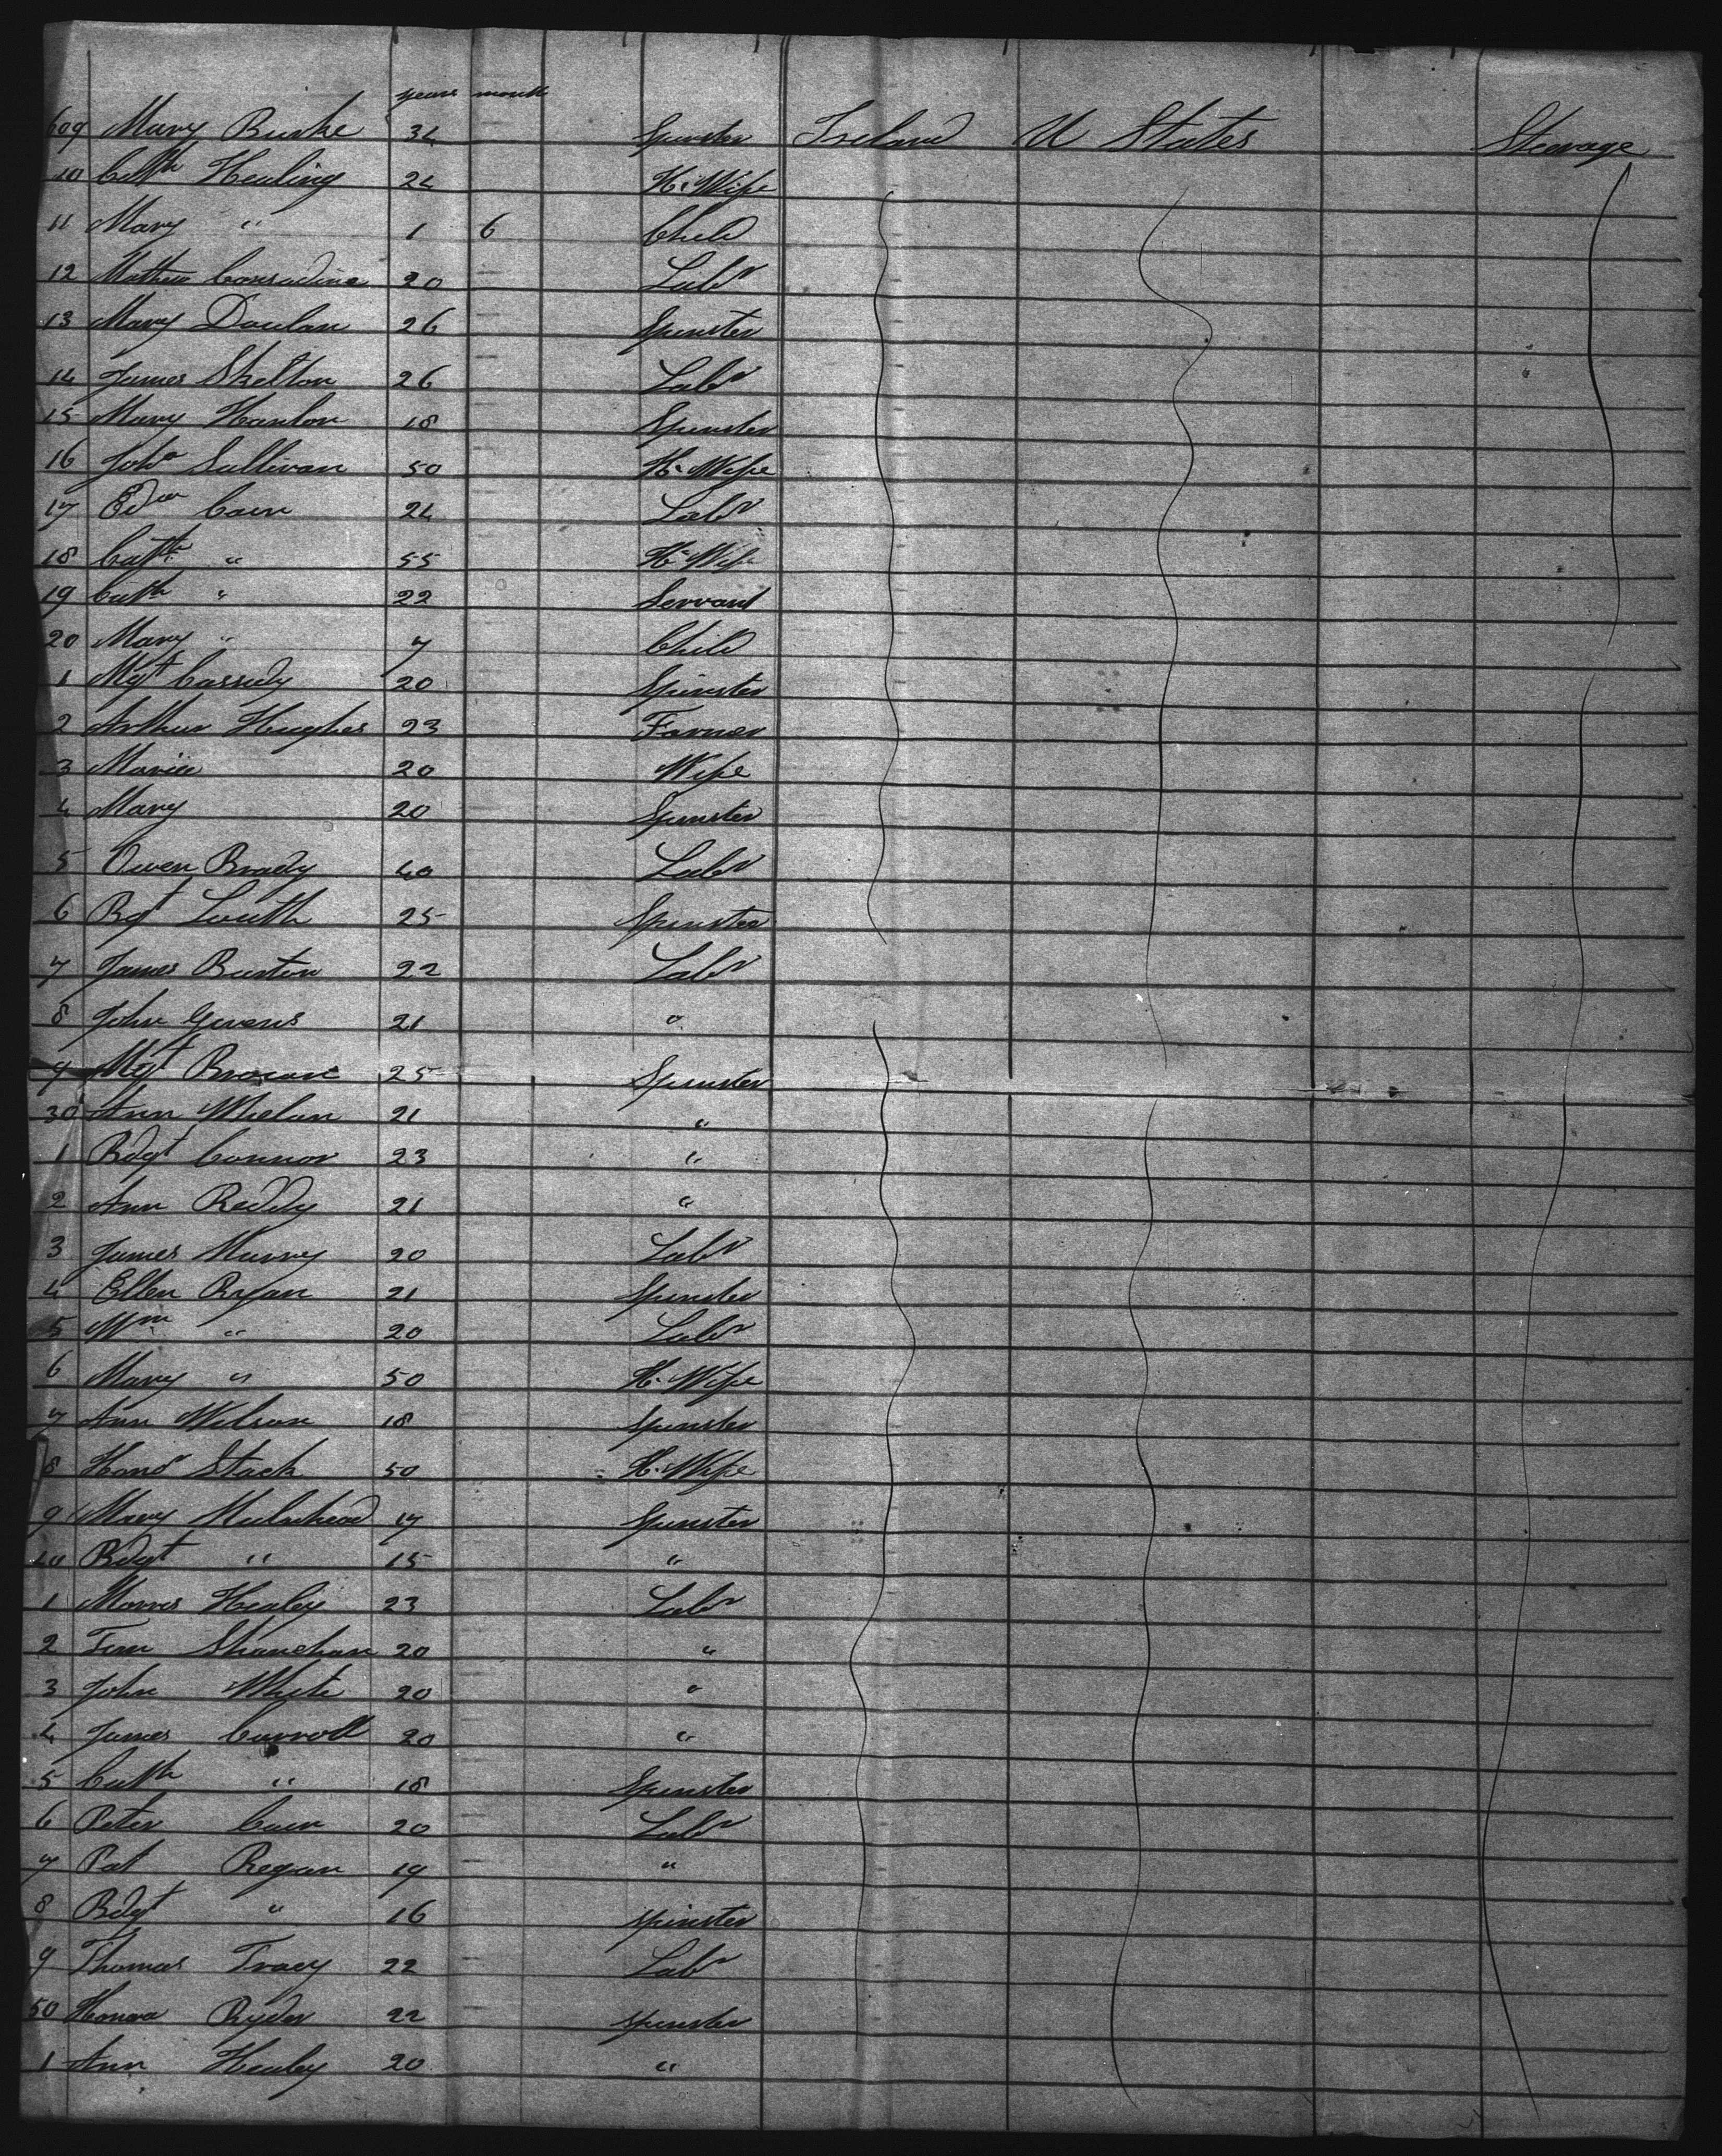 years month
609 Mary Burke 34 Spinster Ireland U States Steerage
10 Cath Healing 24 H. Wife
11 Mary " 1 6 Child
12 Mathew Considine 20 Labr
13 Mary Doulan 26 Spinster
14 James Skelton 26 Labr
15 Mary Hanlon 18 Spinster
16 Joha Sullivan 50 H. Wife
17 Edw Cain 24 Labr
18 Cath " 55 H. Wife
19 Cath " 22 Servant
20 Mary " 7 Child
1 Mgt Cassidy 20 Spinster
2 Arthur Hughes 23 Farmer
3 Maria 20 Wife
4 Mary 20 Spinster
5 Owen Brady 40 Labr
6 Bgt Louth 25 Spinster
7 James Burton 22 Labr
8 John Givens 21 "
9 Mgt Brocan 25 Spinster
30 Ann Whelan 21 "
1 Bdgt Connor 23 "
2 Ann Reddy 21 "
3 James Murry 20 Labr
4 Ellen Ryan 21 Spinster
5 Wm " 20 Labr
6 Mary " 50 H. Wife
7 Ann Wilson 18 Spinster
8 Hono Stack 50 H. Wife
9 Mary Mulrhead 17 Spinster
40 Bdgt " 15 "
1 Morris Healey 23 Labr
2 Tim Shanehan 20 "
3 John White 20 "
4 James Carroll 20 "
5 Cath " 18 Spinster
6 Peter Cain 20 Labr
7 Pat Regan 19 "
8 Bdgt " 16 Spinster
9 Thomas Tracy 22 Labr
50 Honora Ryder 22 Spinster
1 Ann Healey 20 "